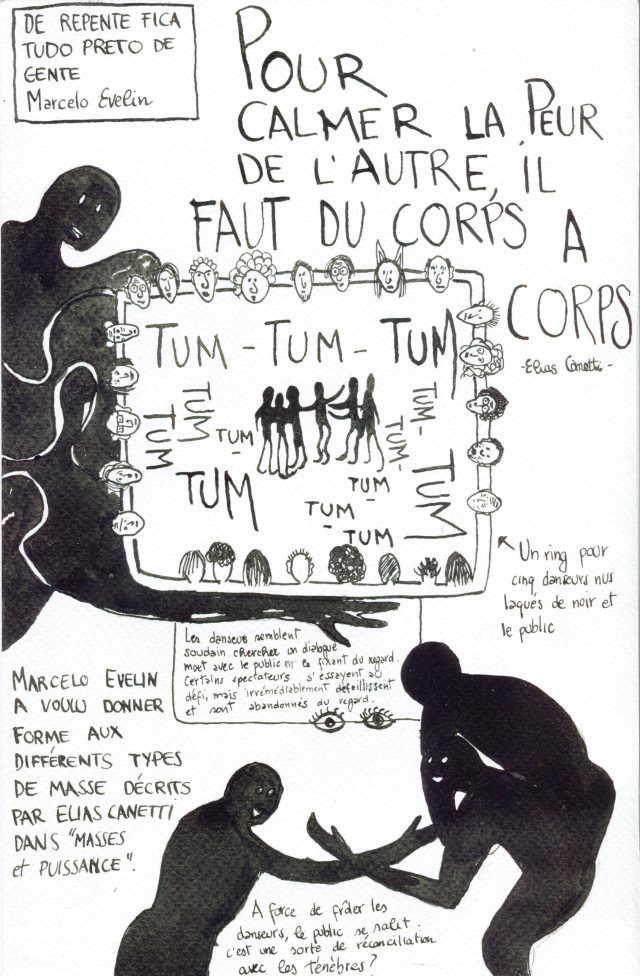 DE REPENTE FICA
TUDO PRETO DE
GENTE
Marcelo Evelin
POUR
CALMER LA PEUR
DE L'AUTRE, IL
FAUT DU CORPS A
CORPS
-Elias Canetti-
TUM - TUM - TUM
TUM
TUM
TUM -
TUM
TUM -
TUM -
TUM
TUM
-
TUM
-
TUM
Un ring pour
cinq danseurs nus
laqués de noir et
le public
Les danseurs semblent
soudain chercher un dialogue
muet avec le public en le fixant du regard.
Certains spectateurs s'essayent au
défi, mais irrémédiablement défaillissent
et sont abandonnés du regard.
MARCELO EVELIN
A VOULU DONNER
FORME AUX
DIFFÉRENTS TYPES
DE MASSE DÉCRITS
PAR ELIAS CANETTI
DANS "MASSES
et PUISSANCE".
A force de frôler les
danseurs, le public se salit.
c'est une sorte de réconciliation
avec les ténèbres ?